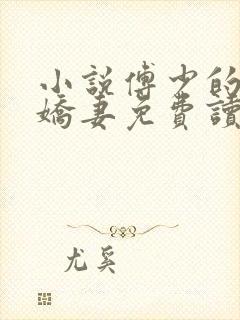 小說傅少的
嬌妻免費讀
尤奚